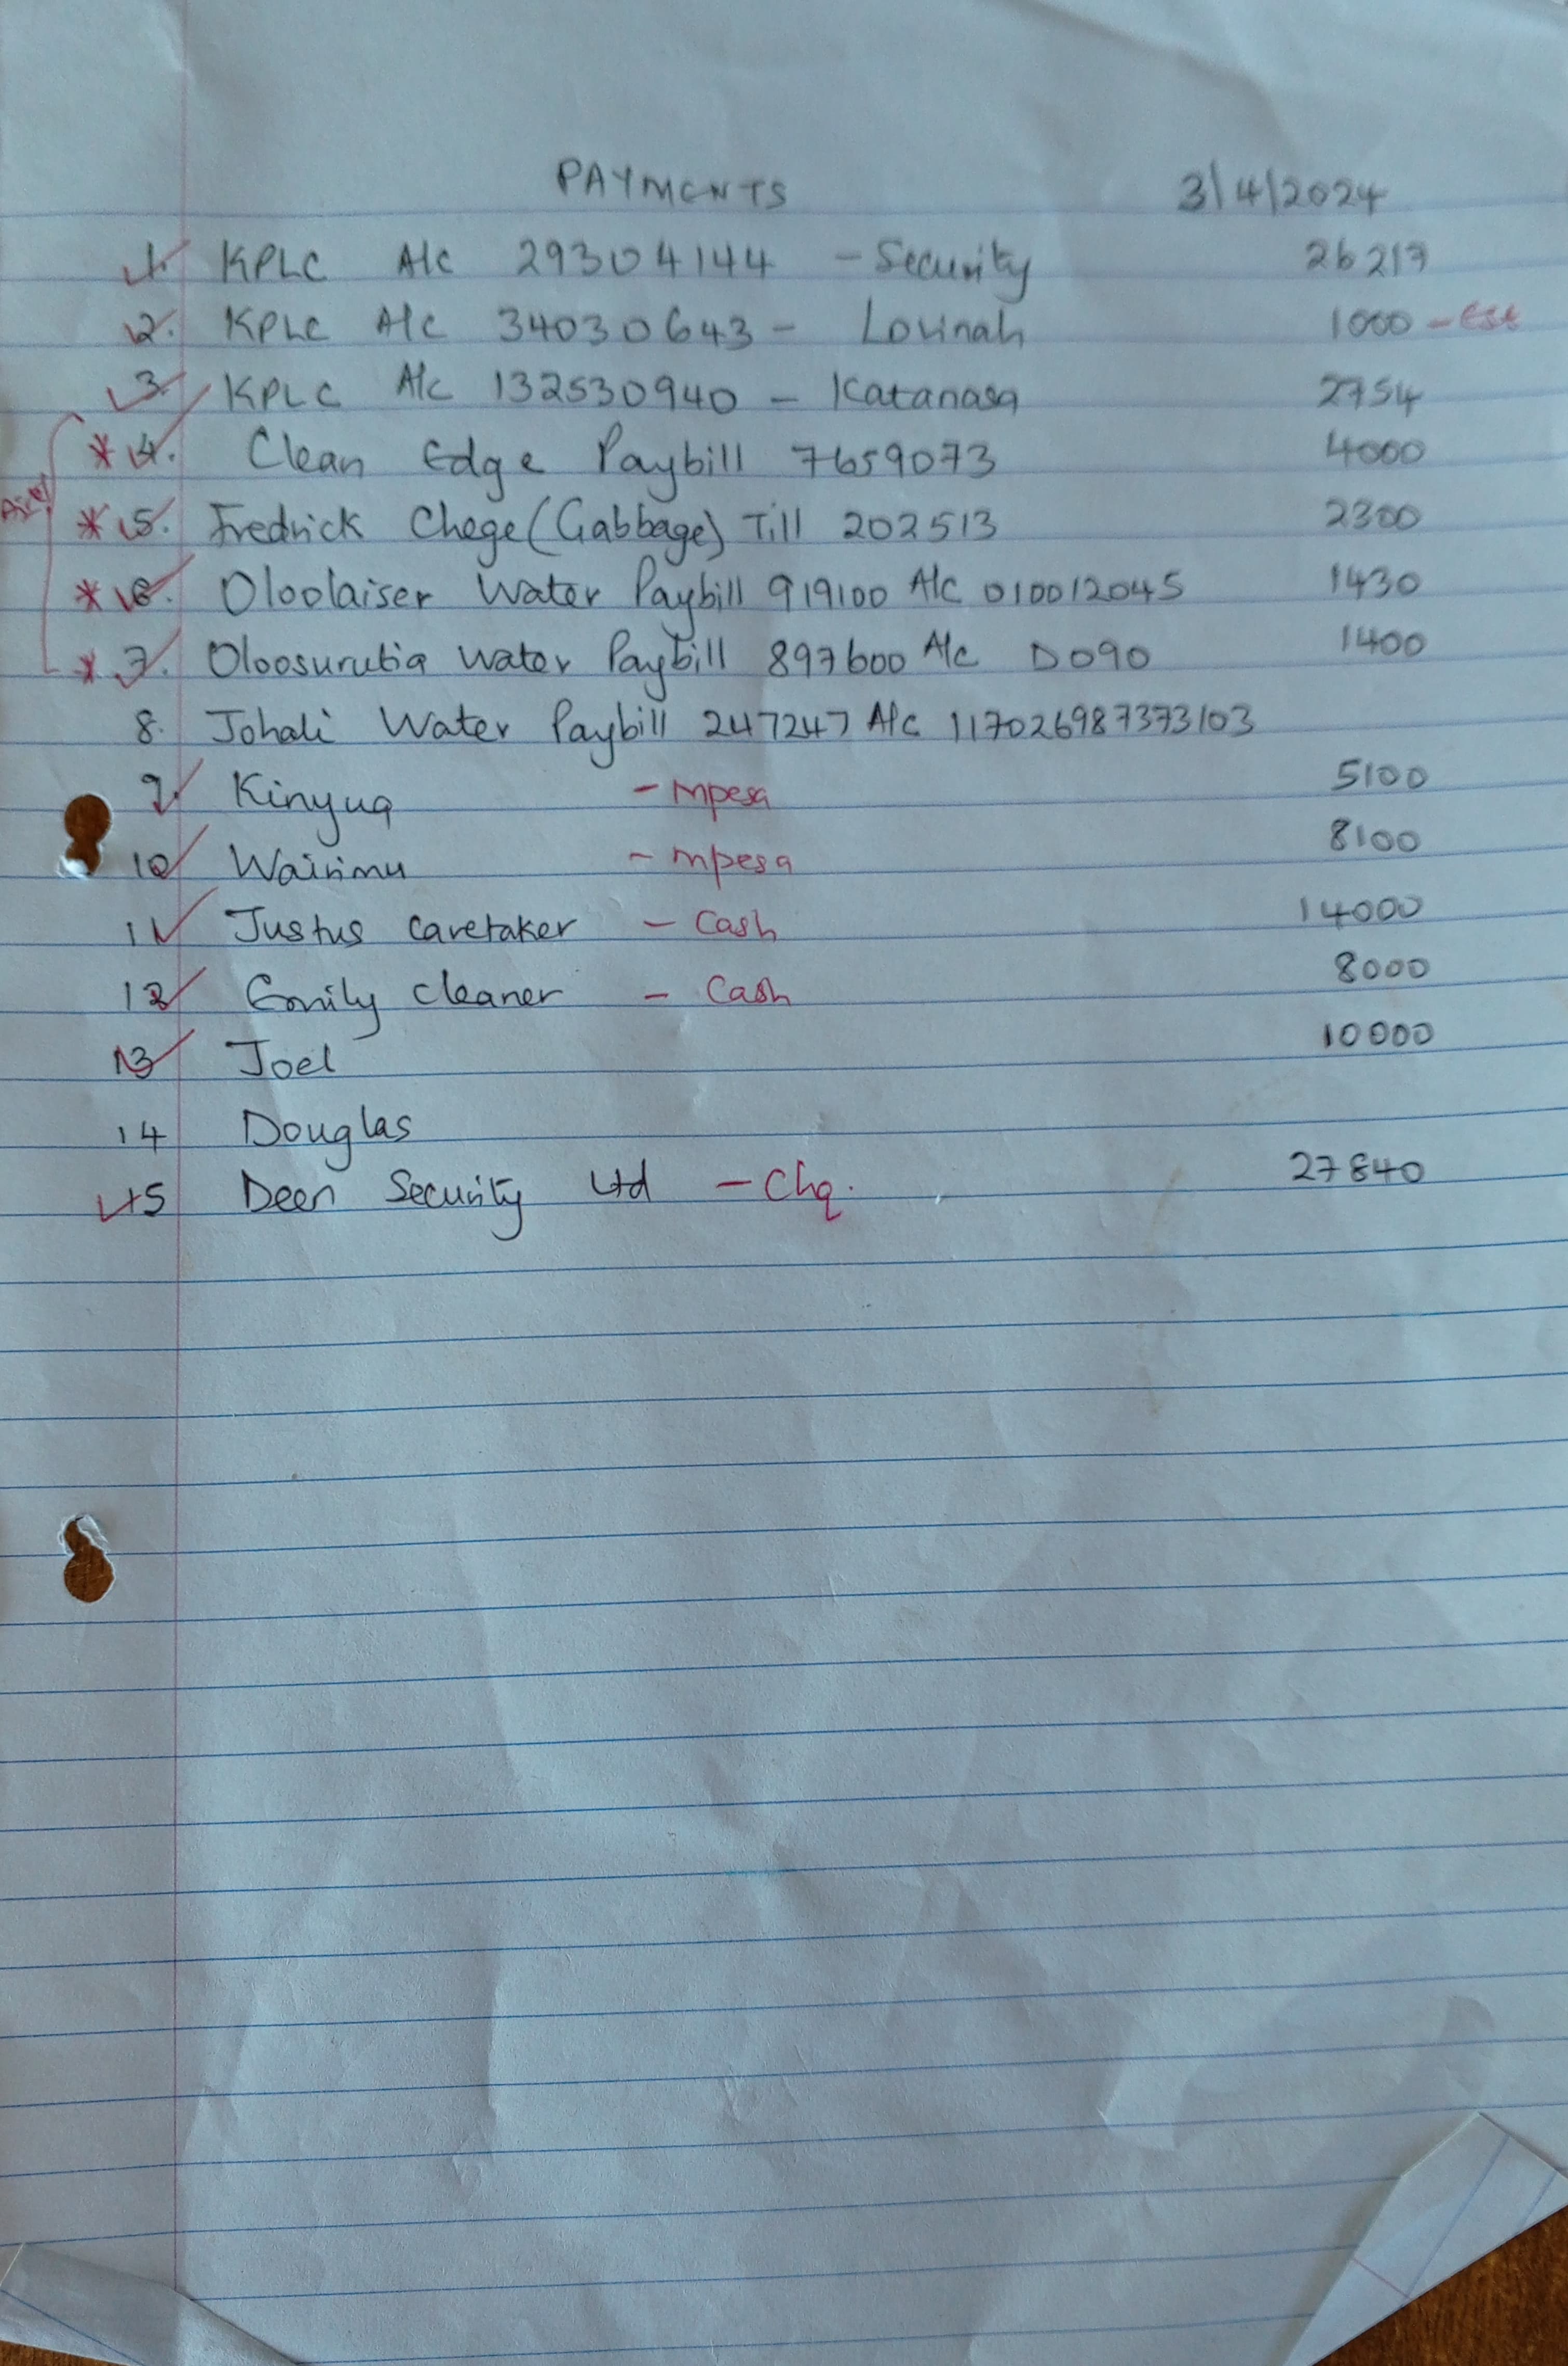 PAYMENTS 3/4/2024
1. KPLC A/c 29304144 - Security 26217
2. KPLC A/c 34030643 - Lovinah 1000 - Est
3. KPLC A/c 132530940 - Katanasa 2754
* 4. Clean Edge Paybill 7659073 4000
* 5. Fredrick Chege (Gabbage) Till 202513 2300
* 6. Oloolaiser Water Paybill 919100 A/c 010012045 1430
* 7. Oloosurutia Water Paybill 897600 A/c D090 1400
8. Johali Water Paybill 247247 A/c 117026987373103
9. Kinyua - Mpesa 5100
10 Wairimu - Mpesa 8100
11 Justus Caretaker - Cash 14000
12 Emily Cleaner - Cash 8000
13 Joel 10000
14 Douglas
15 Deen Security Ltd - Chq. 27840